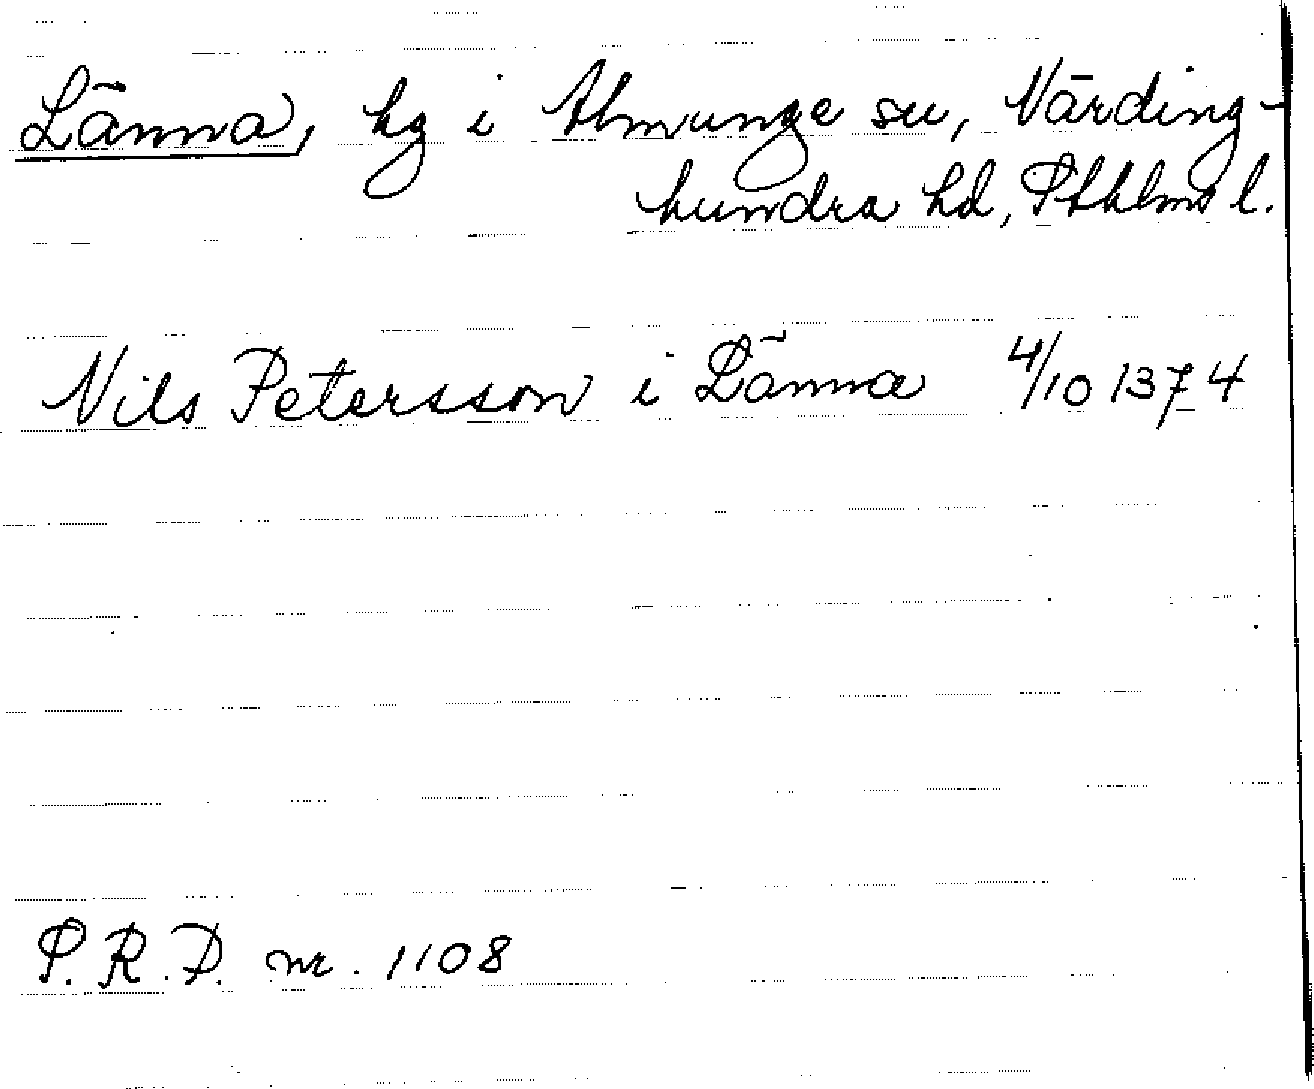 Länna, hg i Almunge sn, Närding-
hundra hd, Sthlms l.
Nils Petersson i Länna 4/10 1374
S.R.D. nr. 1108